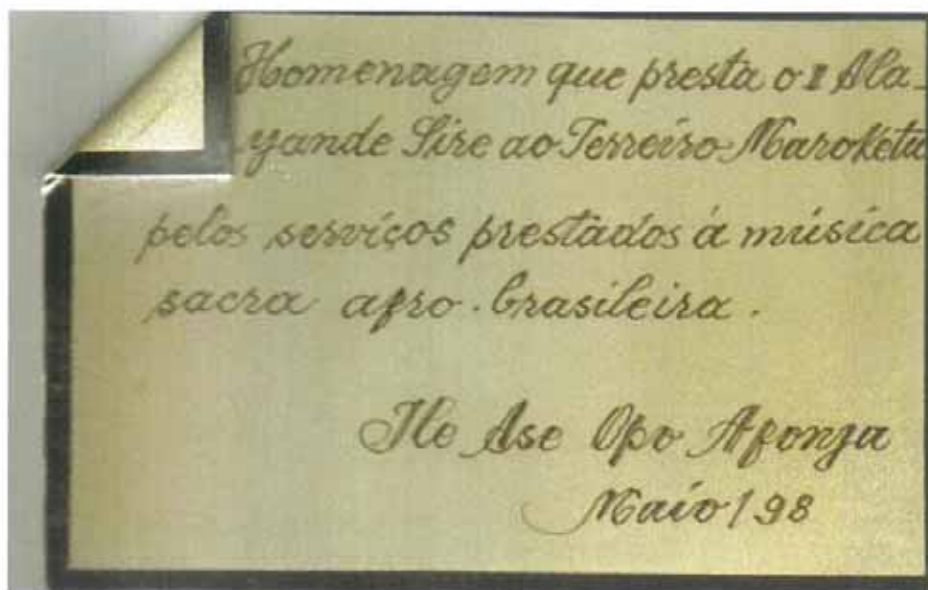 Homenagem que presta o II Ala-
yande Sire ao Terreiro Maroketu
pelos serviços prestados á música
sacra afro-brasileira.
Ile Ase Opo Afonja
Maio/98